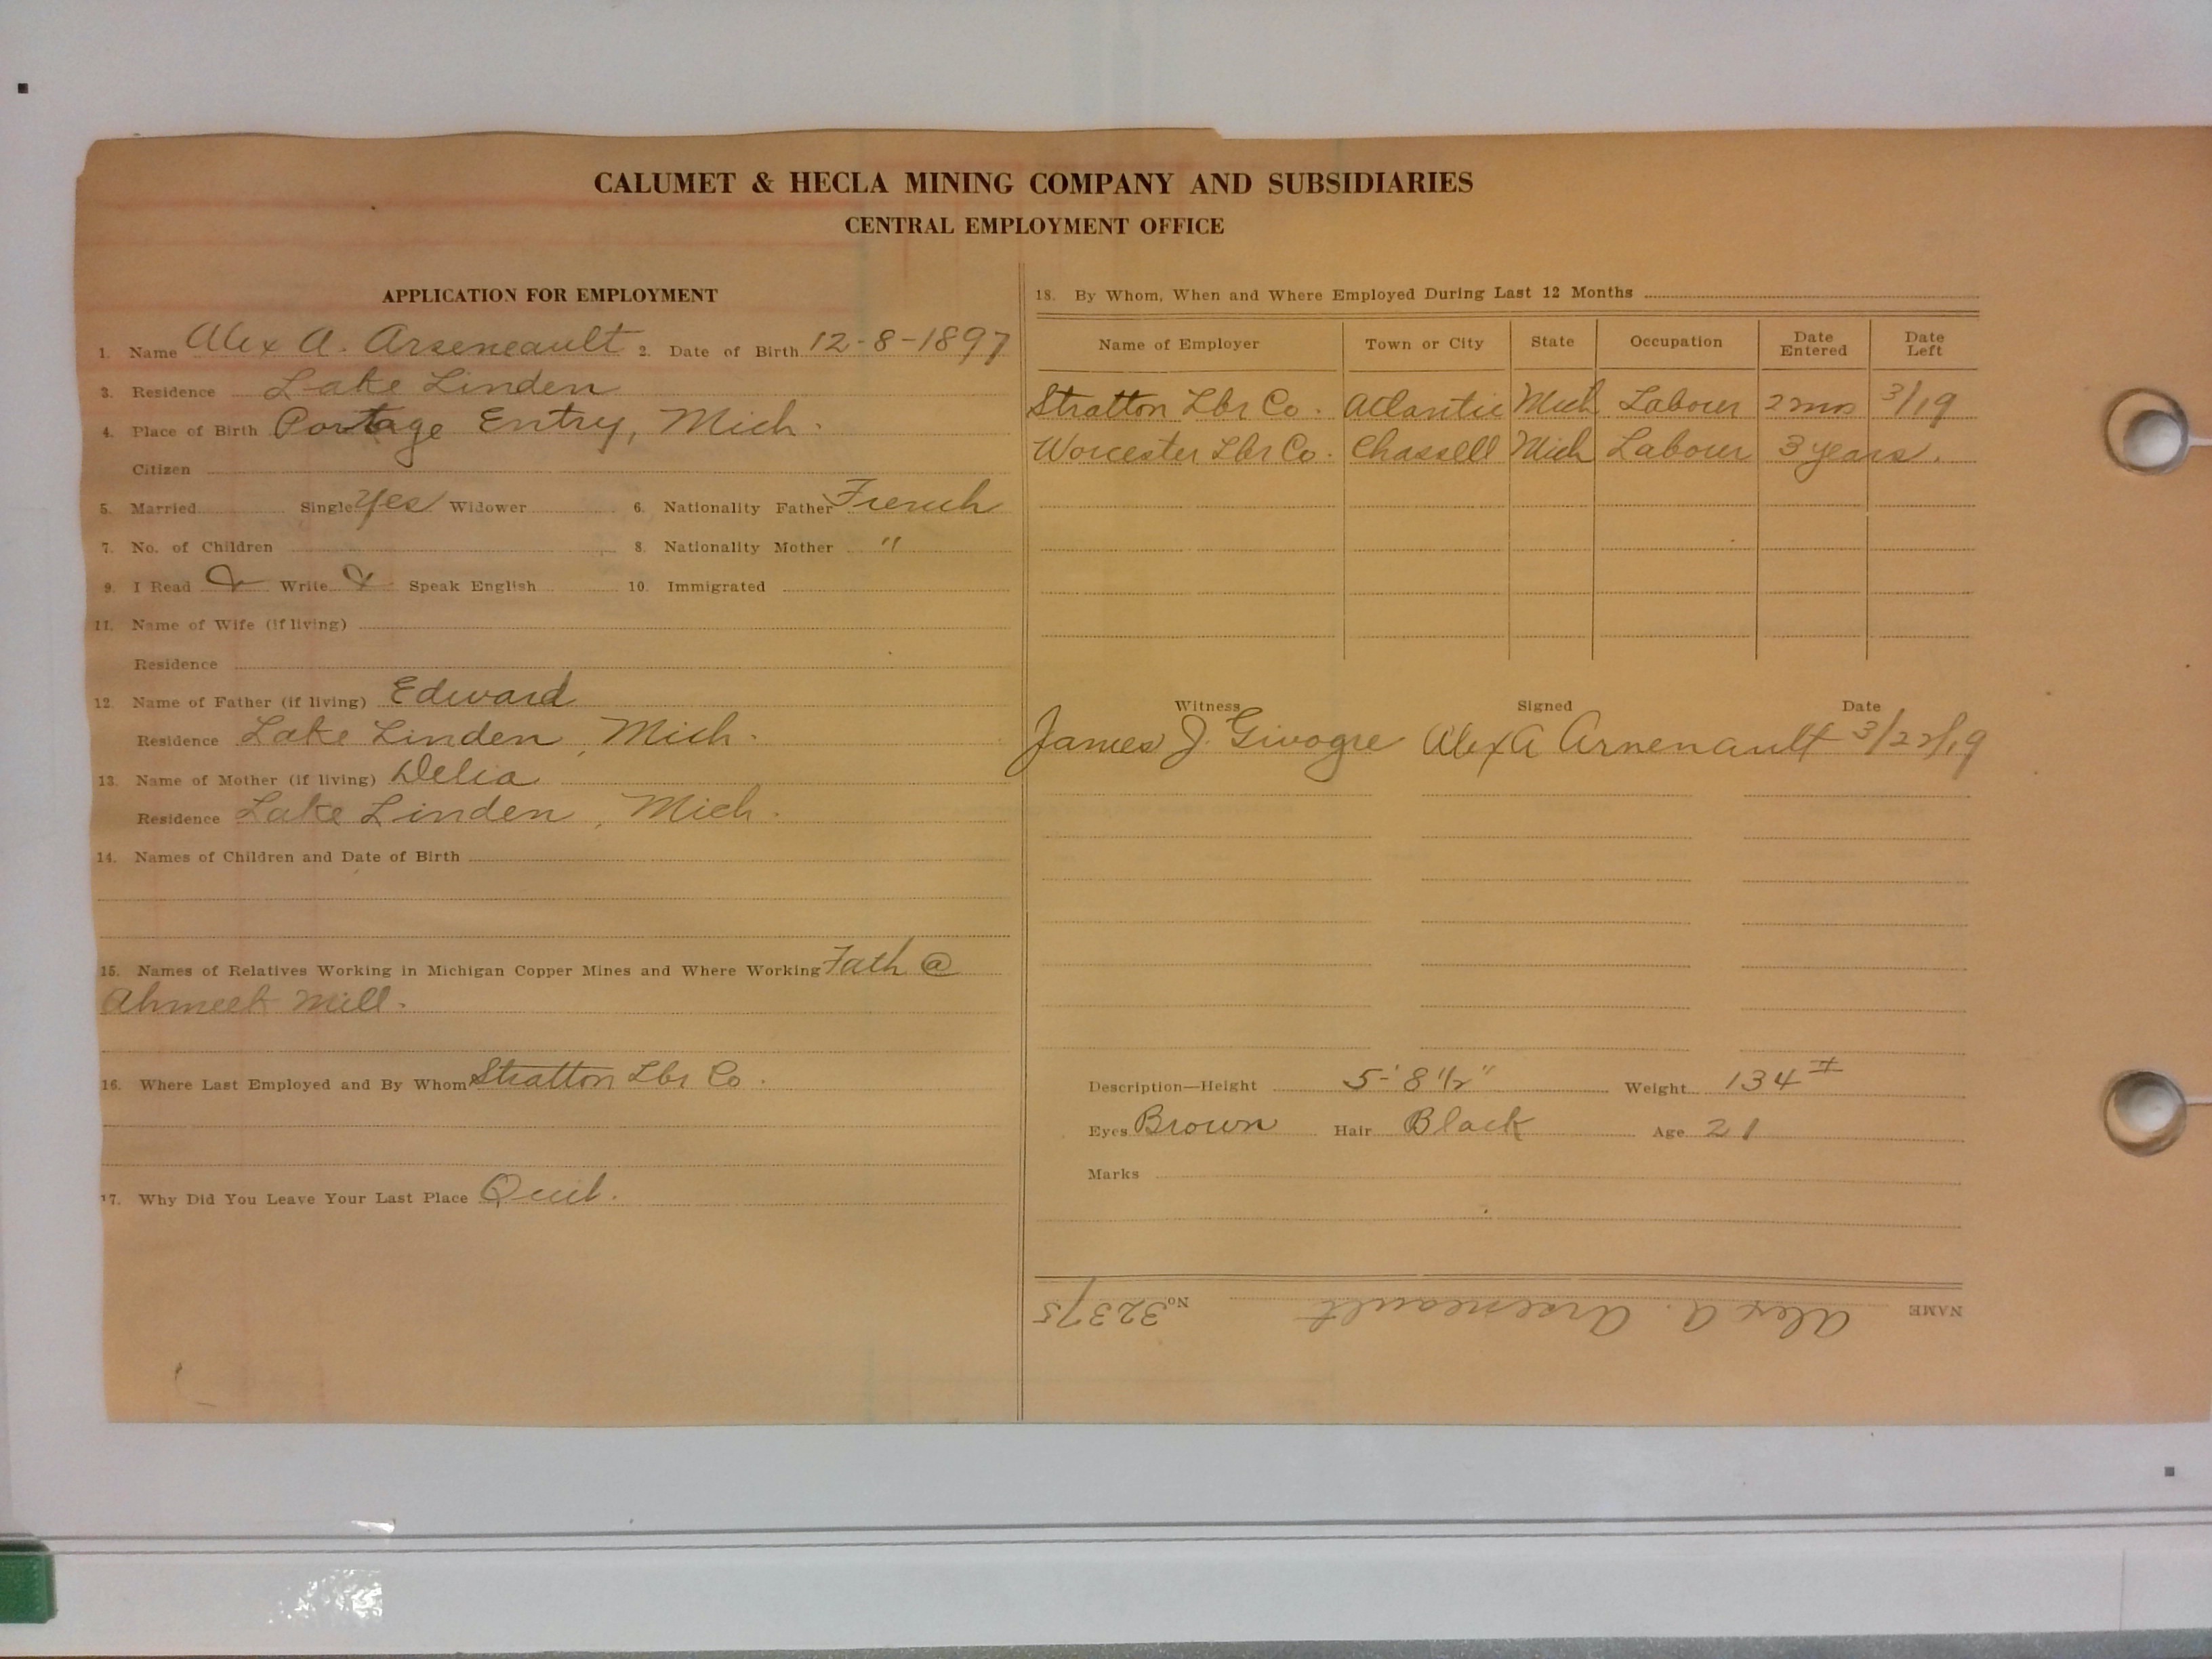 CALUMET & HECLA MINING COMPANY AND SUBSIDIARIES
CENTRAL EMPLOYMENT OFFICE
APPLICATION FOR EMPLOYMENT
1. Name Alex A. Arseneault 2. Date of Birth 12-8-1897
3. Residence Lake Linden
4. Place of Birth Portage Entry, Mich.
Citizen
5. Married Single Yes Widower 6. Nationality Father French
7. No. of Children 8. Nationality Mother "
9. I Read Write Speak English 10. Immigrated
11. Name of Wife (if living)
Residence
12. Name of Father (if living) Edward
Residence Lake Linden, Mich.
13. Name of Mother (if living) Delia
Residence Lake Linden, Mich.
14. Names of Children and Date of Birth
15. Names of Relatives Working in Michigan Copper Mines and Where Working Fath @
Ahmeek Mill.
16. Where Last Employed and By Whom Stratton Lbr Co.
17. Why Did You Leave Your Last Place Quit.
18. By Whom, When and Where Employed During Last 12 Months
Name of Employer Town or City State Occupation Date Entered Date Left
Stratton Lbr Co. Atlantic Mich Labour 2 mos 3/19
Worcester Lbr Co. Chassell Mich Labour 3 years.
Witness Signed Date
James J. Givogre Alex A Arnenault 3/22/19
Description—Height 5-'8 1/2" Weight 134#
Eyes Brown Hair Black Age 21
Marks
NAME Alex A. Arseneault No 32375